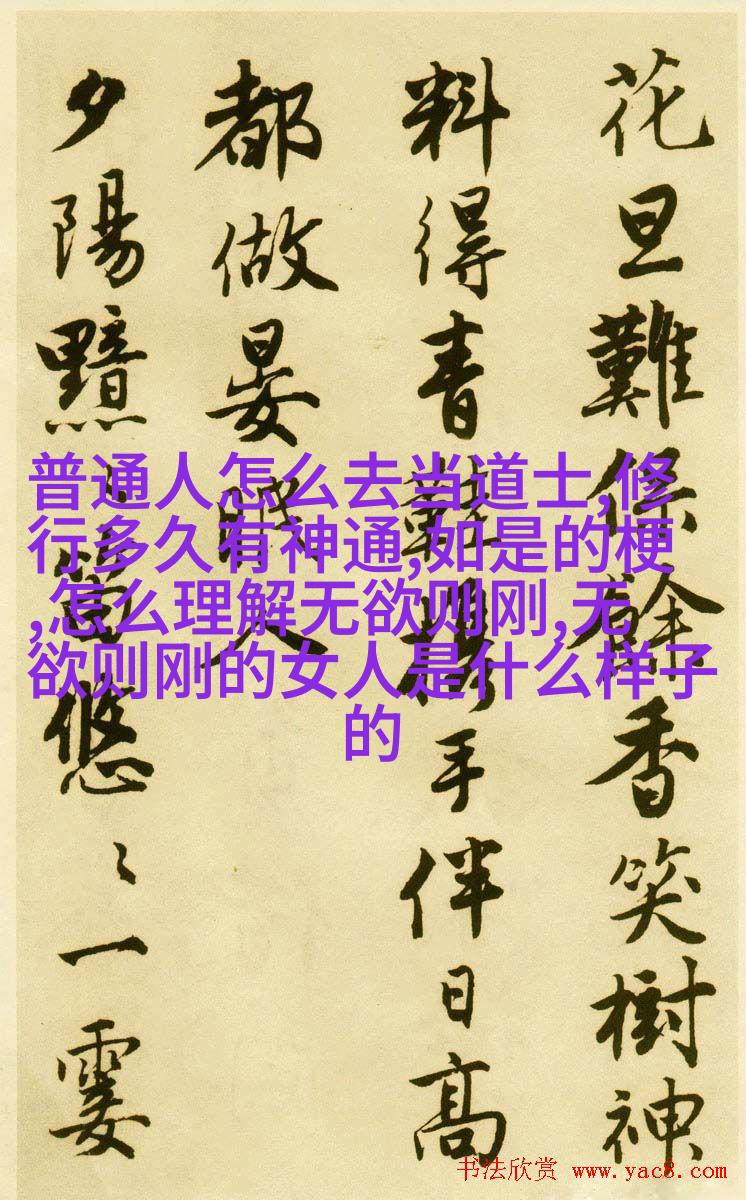 花旦難保餘香笑樹神
料得青鞋攜手伴日高
都做晏眠人
夕陽黯 悠〻一霎
普通人怎么去当道士,修
行多久有神通,如是的梗
,怎么理解无欲则刚,无
欲则刚的女人是什么样子
的
书法欣赏 www.yac8.com